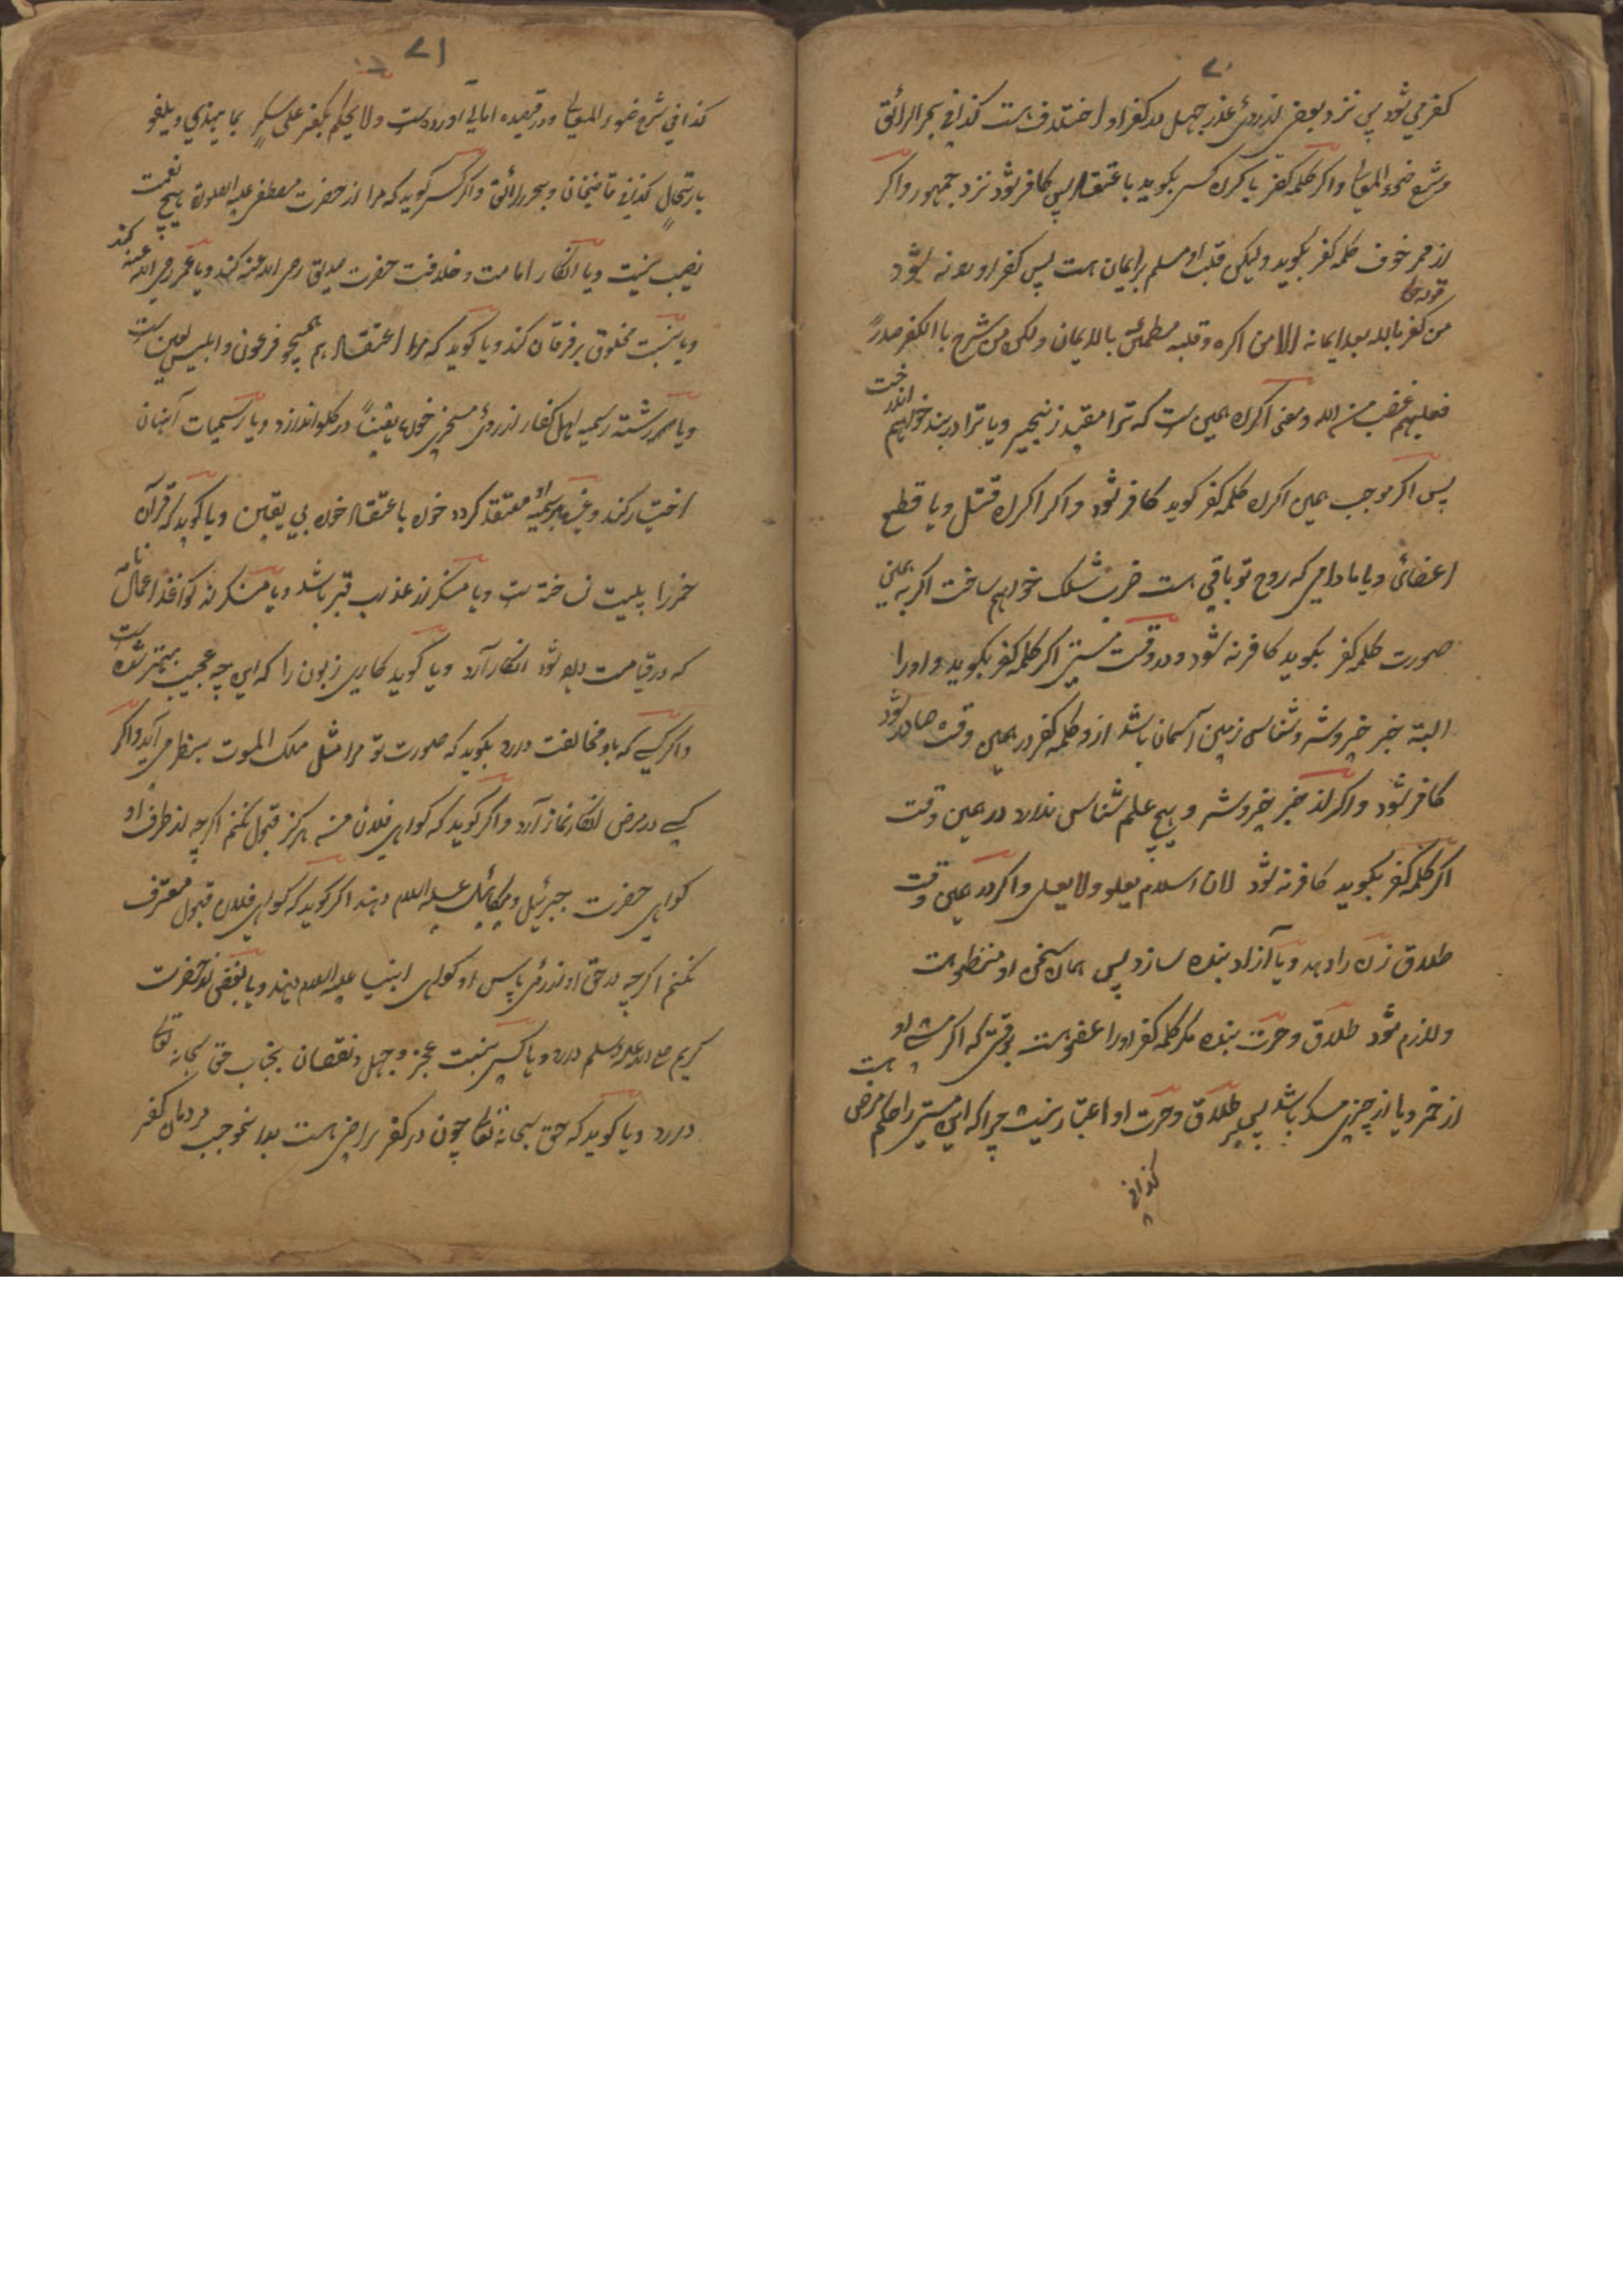 ۷۰
کفر می شود پس نزد بعضی از روی عذر جهل در کفر او اختلاف است کذا فی بحر الرائق
و شرح ضوء المعالی و اگر کلمه کفر باکراه کسی بگوید باعتقاد پس کافر شود نزد جمهور و اگر
از خوف کلمه کفر بگوید ولیکن قلب او مسلم بر ایمان است پس کفر او نه شود
قوله تعالی
من کفر بالله بعد ایمانه الا من اکره و قلبه مطمئن بالایمان ولکن من شرح بالکفر صدرًا
فعلیهم غضب من الله و معنی اکراه همین است که ترا مقید زنجیر و یا ترا در بند خواهم
انداخت
پس اگر موجب همین اکراه کلمه کفر گوید کافر شود و اگر اکراه قتل و یا قطع
اعضائی و یا مادامی که روح تو باقی است ضرب خواهم ساخت اگر به همین
صورت کلمه کفر بگوید کافر نه شود و در وقت مستی اگر کلمه کفر بگوید و او را
البته خبر خیر و شر و شناسی زمین آسمان باشد از و کلمه کفر در همین وقت صادر شود
کافر شود و اگر از خبر خیر و شر و هیچ علم شناس ندارد در همین وقت
اگر کلمه کفر بگوید کافر نه شود لان اسلام یعلو ولا یعلی و اگر در همین وقت
طلاق زن را دهد و یا آزاد بنده سازد پس همان سخن او منظور است
و لازم شود طلاق و حرت بنده مگر کلمه کفر او را عفو است بوقتی که اگر مستی او
از خمر و یا از چیزی مسکر باشد پس بر طلاق و حرت او اعتبار نیست چرا که این مستی را حکم مرضی
است
کذا فی
۷۱
کذا فی شرح ضوء المعالی و در قصیده امالی آورده است ولا یحکم بکفر علی سکر بما یهذی و یلغو
بارتجال کذا فی قاضیخان و بحر الرائق و اگر کسی گوید که مرا از حضرت مصطفی علیه الصلوة هیچ نعمت
نصیب نیست و یا انکار امامت و خلافت حضرت صدیق رضی الله عنه کند و یا عمر رضی الله عنه
کند
و یا نسبت مخلوق بر فرقان کند و یا گوید که مرا اعتقاد هم همچو فرعون و ابلیس لعین است
و یا سر رشته رسمیه اهل کفار از روی مسخری خواه یقیناً در گلو اندازد و یا رسمیات آنهان
اختیار کند و غیره بر رسمیه او معتقد کردد خواه باعتقاد خواه بی یقین و یا گوید که قرآن
خر را پلیت ساخته است و یا منکر از عذاب قبر باشد و یا منکر نه کواغذ اعمال نامه
که در قیامت داده شود انکار آرد و یا گوید کاری زبون را که این چه عجیب بهتر شده است
و اگر کسی که با او مخالفت دارد بگوید که صورت تو مرا مثل ملک الموت بنظر می آید و اگر
کسی در مرض انکار نماز آرد و اگر گوید که گواهی فلان منه هرگز قبول نکنم اگرچه از طرف او
گواهی حضرت جبرئیل و میکائیل علیه السلام دهند اگر گوید که گواهی فلان قبول معترف
نکنم اگرچه در حق او از روی پاس او گواهی انبیا علیه السلام دهند و یا بغض از آنحضرت
کریم صلی الله علیه وسلم دارد و یا کسی نسبت عجز و جهل و نقصان بجناب حق سبحانه تعالی
دارد و یا گوید که حق سبحانه تعالی چون در کفر راضی است بدانخوجب مردمان کفر